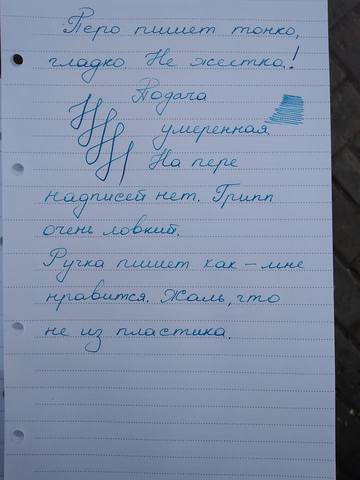 Перо пишет тонко,
гладко. Не жестко!
Подача
умеренная.
На пере
надписей нет. Грипп
очень ловкий.
Ручка пишет как – мне
нравится. Жаль, что
не из пластика.